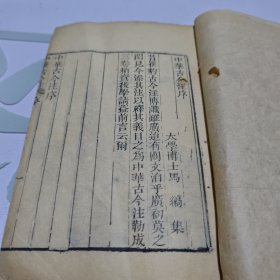 中華古今注序
太學博士馬縞集
昔崔豹古今注博識雖廣殆有闕文洎乎廣初莫之
聞見今添其注以釋其義目之爲中華古今注勒成
三卷稍資後學請益前言云爾
中華古今注序